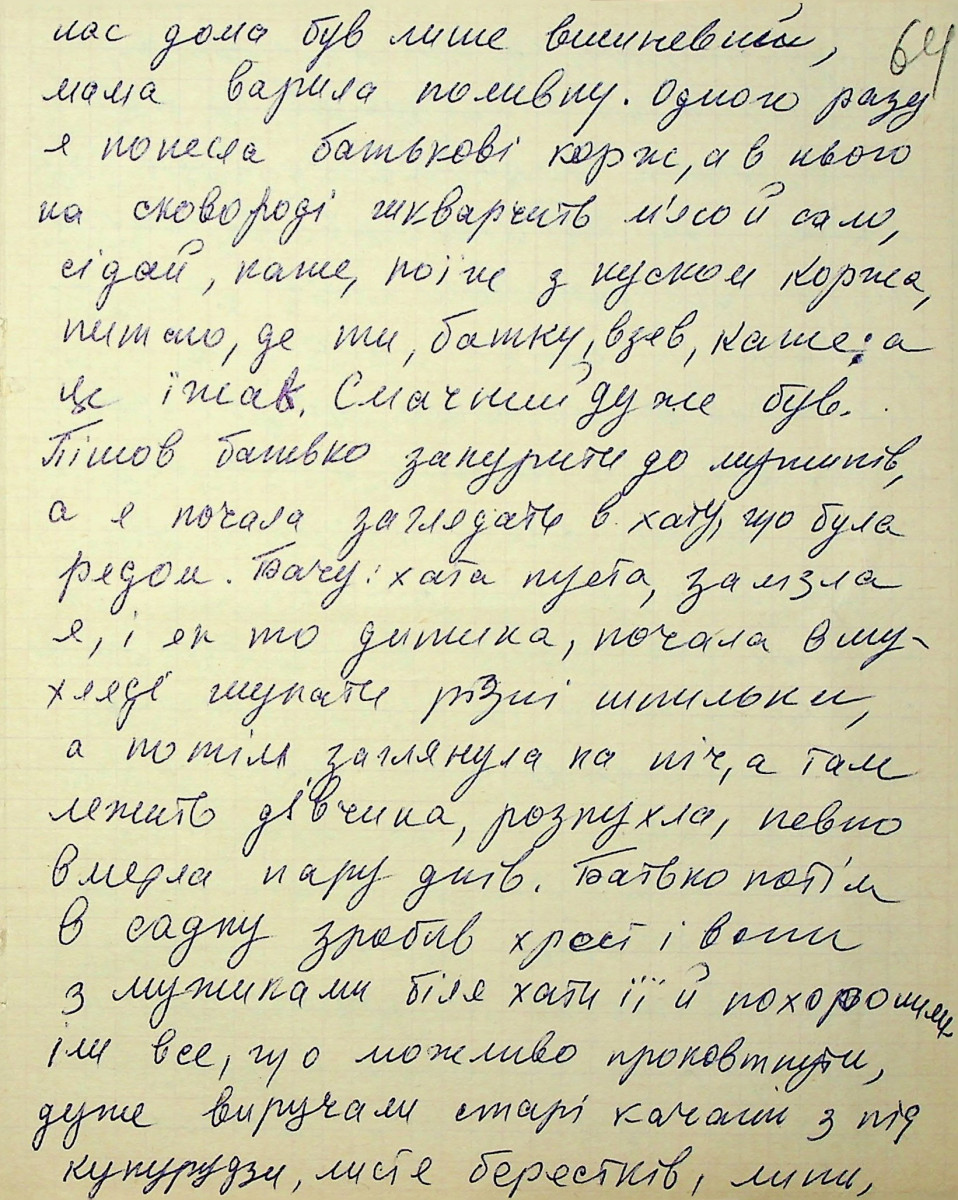 нас дома був лише вишневий,
64
мама варила поливку. Одного разу
я понесла батькові корж, а в нього
на сковороді шкварчить м'ясо й сало,
сідай, каже, поїж з куском коржа,
питаю, де ти, батку, взев, каже: а
це їжак. Смачний дуже був.
Пішов батько закурити до мужиків,
а я почала заглядати в хату, що була
редом. Бачу: хата пуста, замзла
я, і як то дитина, почала в му-
хляді шукати різні шпильки,
а потім заглянула на піч, а там
лежить дівчина, розпухла, певно
вмерла пару днів. Батько потім
в садку зробив хрест і вони
з мужиками біля хати її й похоронили
їли все, що можливо проковтнути,
дуже виручали старі качани з під
кукурудзи, листя берестків, липи,